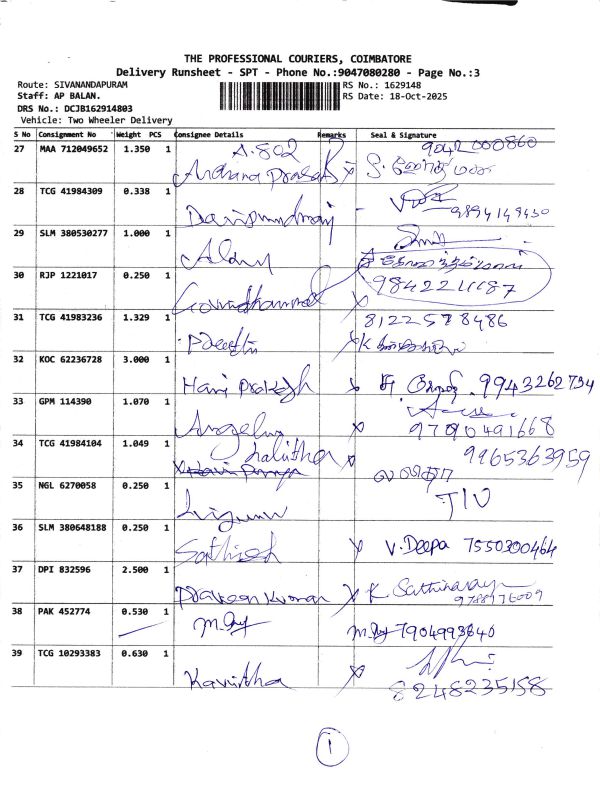 THE PROFESSIONAL COURIERS, COIMBATORE
Delivery Runsheet - SPT - Phone No.:9047080280 - Page No.:3
Route: SIVANANDAPURAM
Staff: AP BALAN.
DRS No.: DCJB162914803
Vehicle: Two Wheeler Delivery
RS No.: 1629148
RS Date: 18-Oct-2025
S No Consignment No Weight PCS Consignee Details Remarks Seal & Signature
27 MAA 712049652 1.350 1 A.802 9042000860
Archana Prasad
28 TCG 41984309 0.338 1 9894149430
29 SLM 380530277 1.000 1
30 RJP 1221017 0.250 1 9842211187
Govindhammal
31 TCG 41983236 1.329 1 8122578486
Preethi
32 KOC 62236728 3.000 1
Hari Prakash 9943262734
33 GPM 114390 1.070 1
Angelin 9790491668
34 TCG 41984104 1.049 1 Lalitha 9965363959
லலிதா
35 NGL 6270058 0.250 1
36 SLM 380648188 0.250 1
Sathish V.Deepa 7550300464
37 DPI 832596 2.500 1
Praveen Kumar K Sathinarayan
38 PAK 452774 0.530 1
7904993640
39 TCG 10293383 0.630 1
Kavitha 8248235158
1